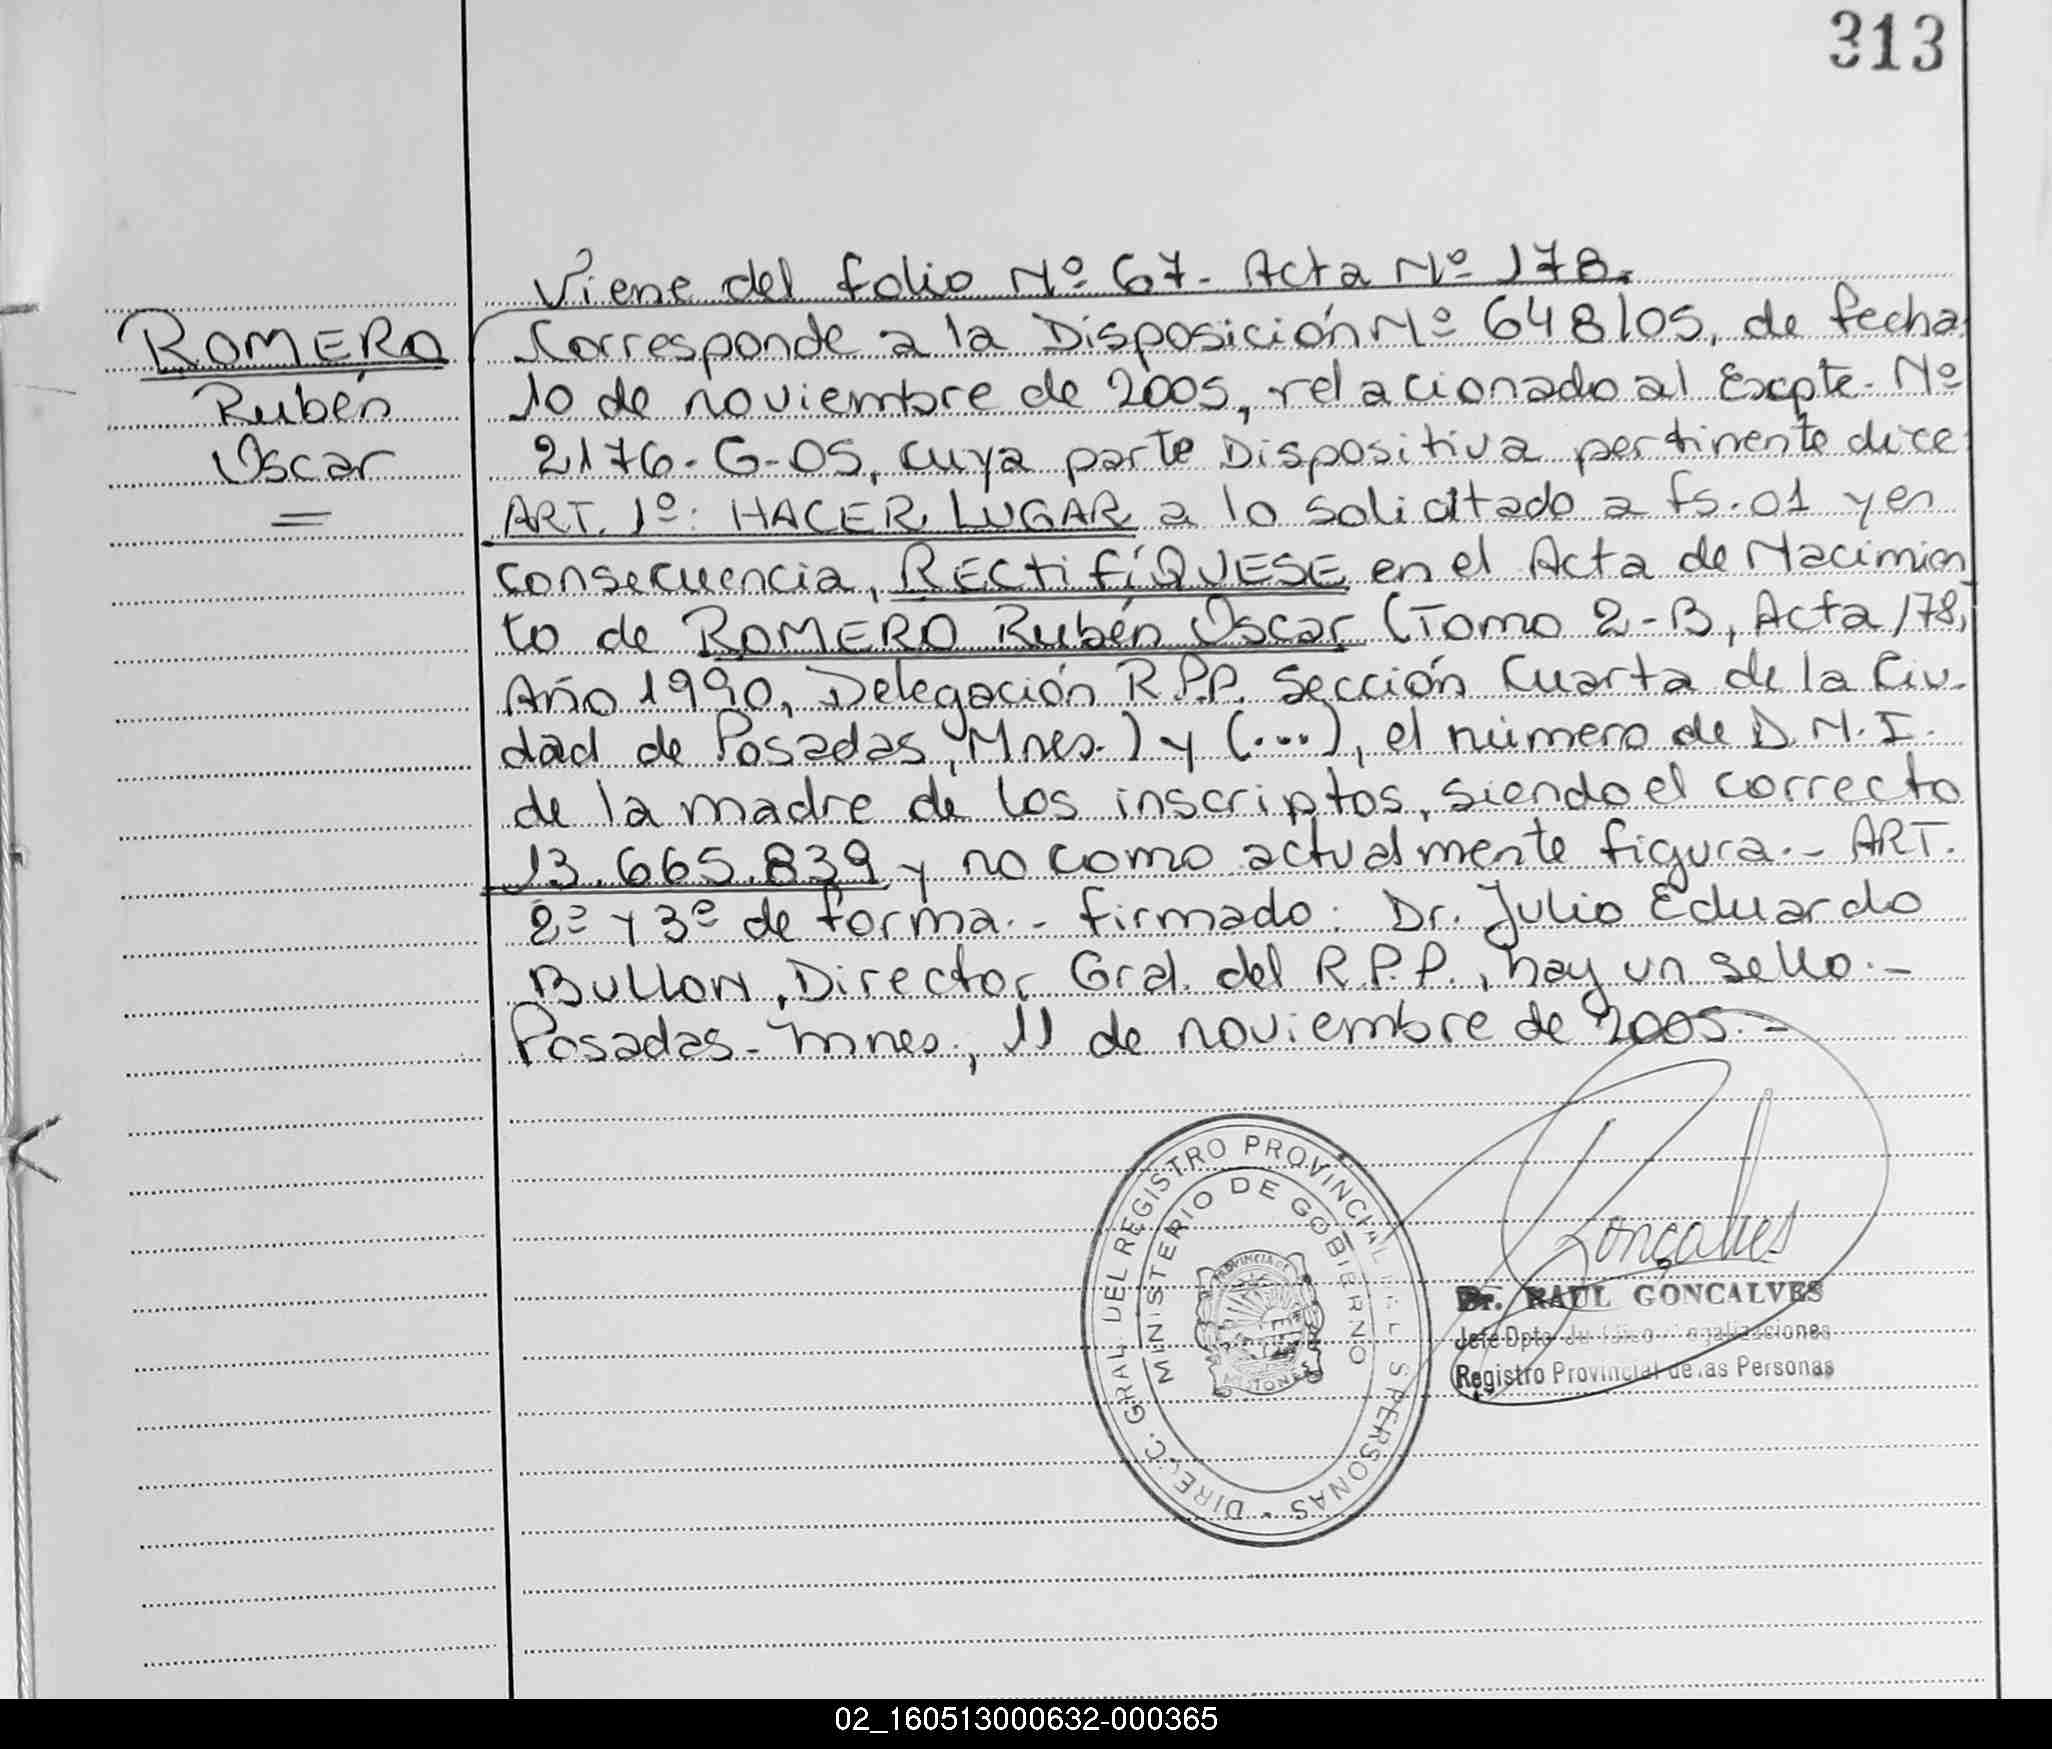 313
Viene del folio Nº 67- Acta Nº 178.
ROMERO
Rubén
Oscar
Corresponde a la Disposición Nº 648/05, de fecha
10 de noviembre de 2005, relacionado al Expte. Nº
2176-G-05, cuya parte Dispositiva pertinente dice:
ART. 1º: HACER LUGAR a lo solicitado a fs. 01 y en
consecuencia, RECTIFÍQUESE en el Acta de Nacimien
to de ROMERO Rubén Oscar (Tomo 2-B, Acta 178,
Año 1990, Delegación R.P.P. Sección Cuarta de la Ciu-
dad de Posadas, Mnes.) y (...), el número de D.N.I.
de la madre de los inscriptos, siendo el correcto
13.665.839 y no como actualmente figura.- ART.
2º y 3º de forma.- firmado: Dr. Julio Eduardo
Bullon, Director Gral. del R.P.P., hay un sello.-
Posadas-Mnes., 11 de noviembre de 2005.-
DIREC. GRAL. DEL REGISTRO PROVINCIAL PERSONAS -
MINISTERIO DE GOBIERNO
PROVINCIA DE
MISIONES
Gonçalves
Dr. RAUL GONCALVES
Jefe Dpto. Legalizaciones
Registro Provincial de las Personas
02_160513000632-000365